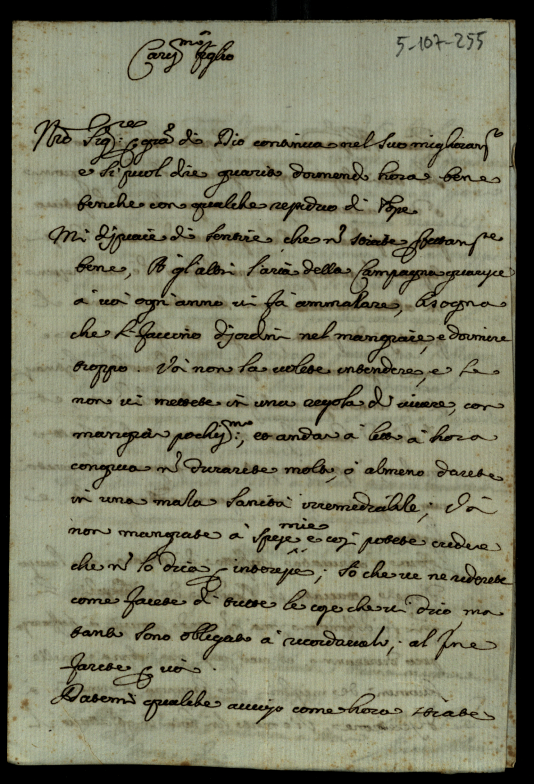 5-107-255
Caris.mo figlio
N.ro Sig.re: p gra di Dio continua nel suo miglioram.to
e si puol dire guarito dormendo hora bene
benche con qualche residuo di tosse
Mi dispiace di sentire che nõ state perfettam.te
bene, Se gl'altri l'aria della Campagna guarisce
à voi ogn'anno vi fà ammalare, bisogna
che si faccino disordini nel mangiare, e dormire
troppo. Voi non la volete intendere, e se
non vi mettete in una regola di vivere, con
mangiar pochis.mo; et andar à letto à hora
congrua nõ durarete molto, ò almeno darete
in una mala sanità irremediabile; Voi
non mangiate à spese mie e così potete credere
che nõ lo dico p interesse; Sò che ve ne riderete
come facete di tutte le cose che vi dico mà
tanto sono obligato à ricordarvelo; al fine
farete p voi.
Datemi qualche aviso come hora state